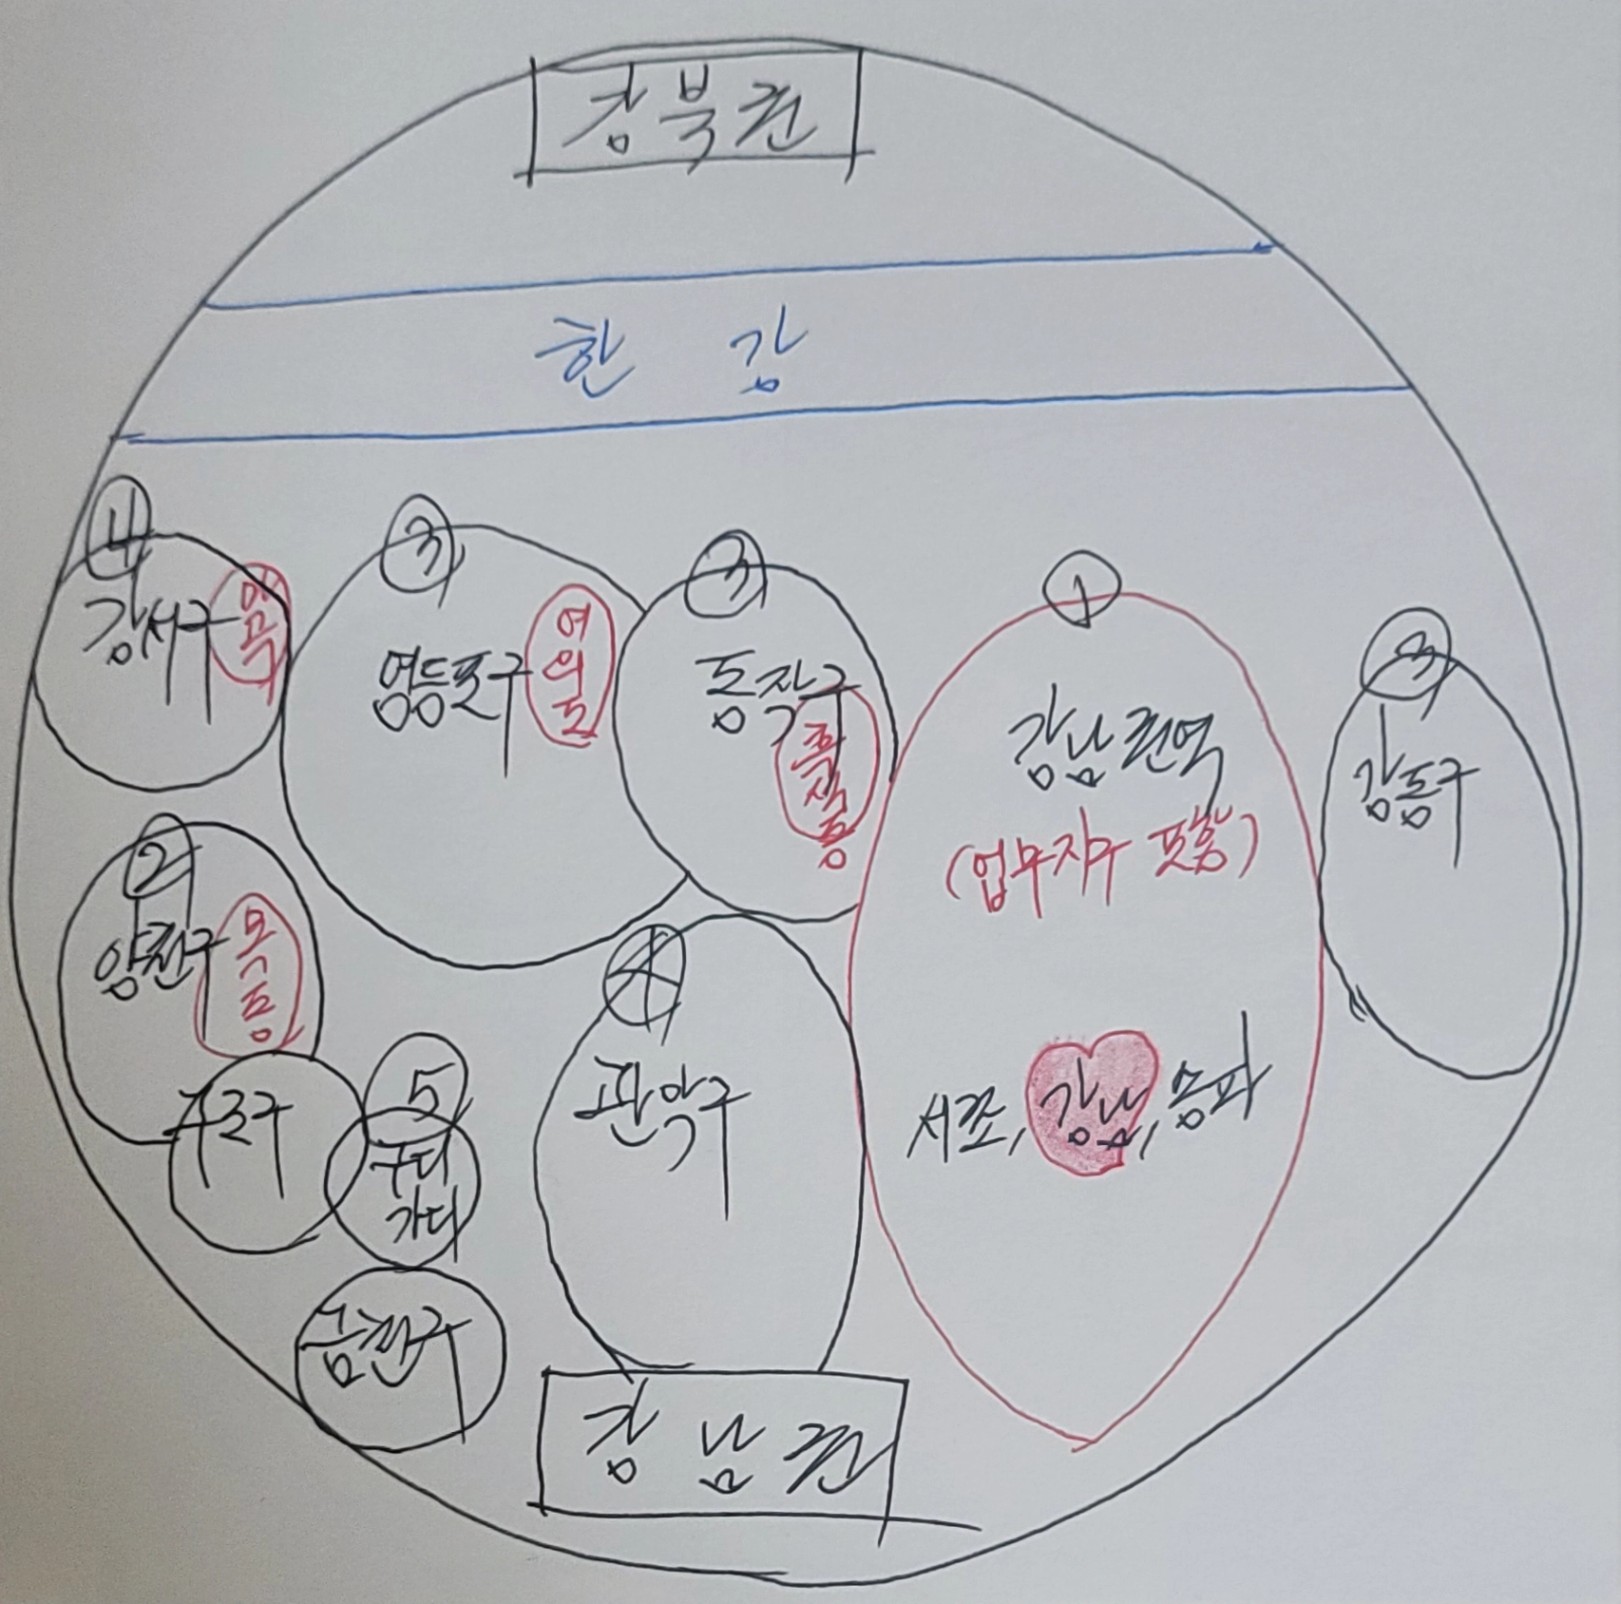 강북권
한 강
④
강서구
③
영등포구
여
의
도
③
동작구
흑
석
동
①
강남권역
(업무지구 포함)
서초, 강남, 송파
③
강동구
②
양천구
목
동
구로구
⑤
구디
가디
④
관악구
금천구
강남권